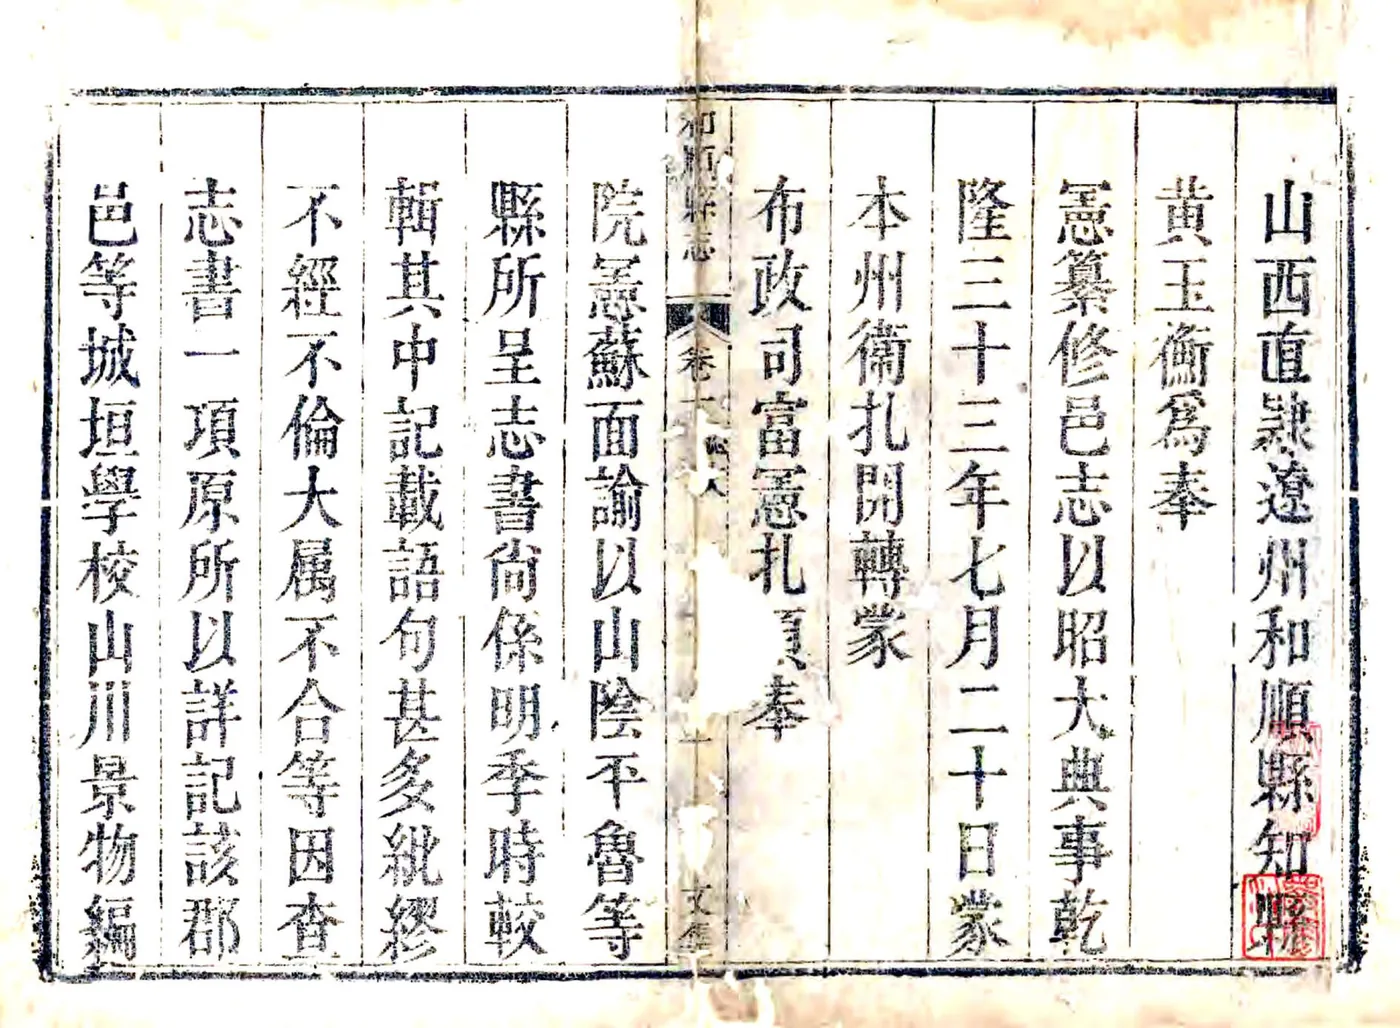 山西直隸遼州和順縣知縣
黄玉衡爲奉
憲纂修邑志以昭大典事乾
隆三十三年七月二十日蒙
本州衞扎開轉蒙
布政司富憲扎奉
和順縣志
卷
文集
院憲蘇面諭以山陰平魯等
縣所呈志書尚係明季時較
輯其中記載語句甚多紕繆
不經不倫大属不合等因查
志書一項原所以詳記該郡
邑等城垣學校山川景物編